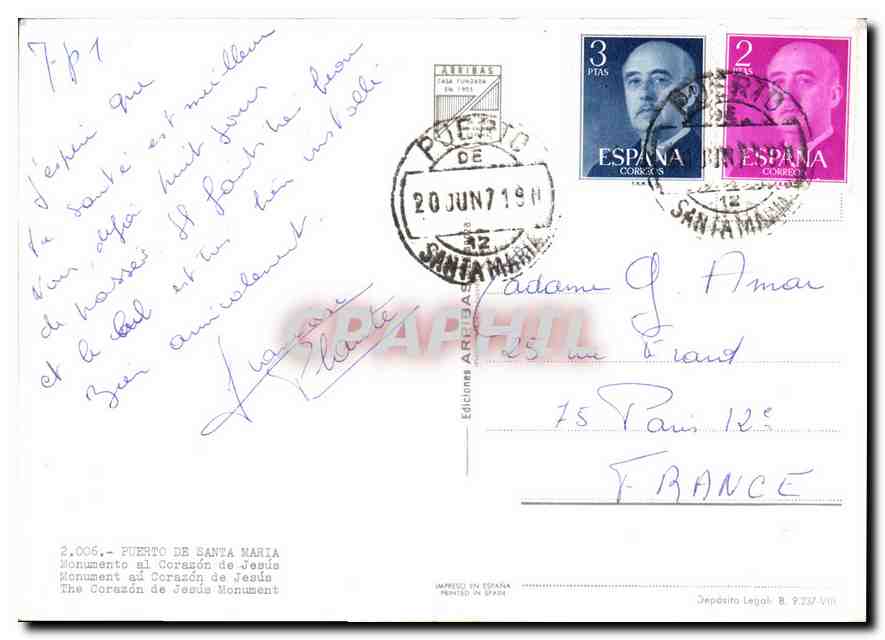 J'espère que
ta santé est meilleure
Voici déjà huit jours
de passés. Il fait très beau
et le est très bien installé
Bien amicalement.
Françoise
Plante
ARRIBAS
CASA FUNDADA
EN 1905
PUERTO
DE
20 JUN 71 9 N
12
SANTA MARIA
3
PTAS
ESPAÑA
CORREOS
2
PTAS
ESPAÑA
CORREOS
PUERTO
DE
12
SANTA MARIA
Madame G. Amar
25 rue Erard
75 Paris 12e
FRANCE
Ediciones ARRIBAS
CPAPHIL
2.006.- PUERTO DE SANTA MARIA
Monumento al Corazón de Jesús
Monument aú Corazón de Jesús
The Corazón de Jesús Monument
IMPRESO EN ESPAÑA
PRINTED IN SPAIN
Depósito Legal: B. 9.237-VIII